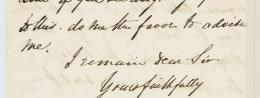 to this. do me the favor to advise
me.
I remain dear Sir
Yours faithfully